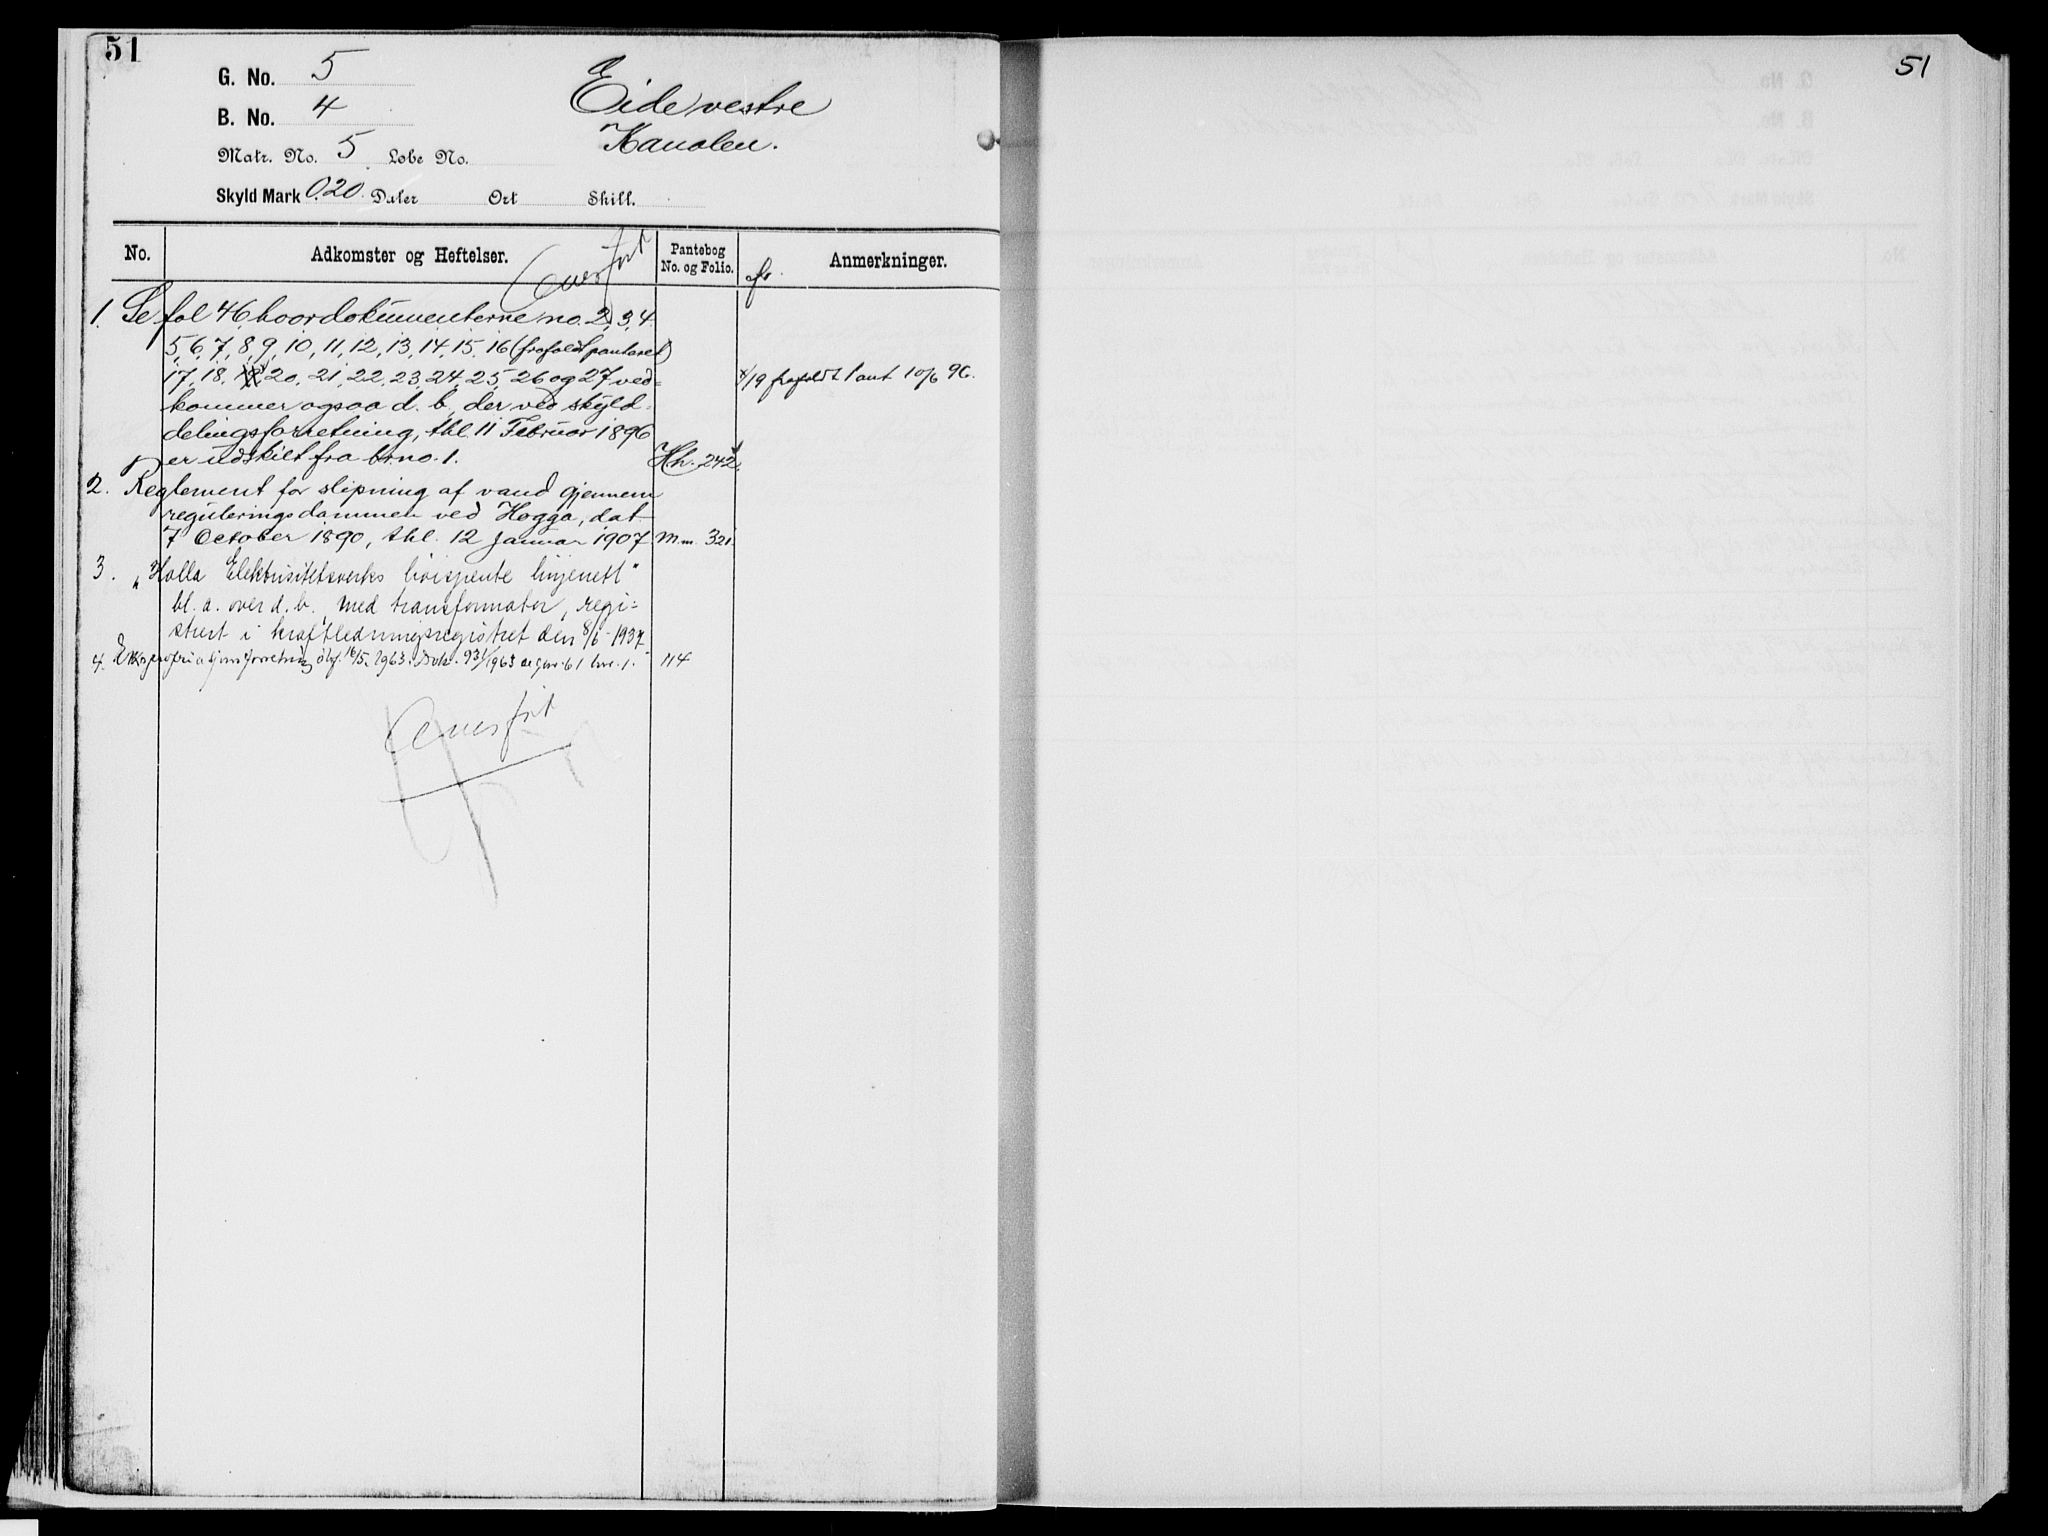 51
G. No. 5
B. No. 4
Matr. No. 5 Løbe No.
Skyld Mark 0.20. Daler Ort Skill.
Eide vestre
Kanalen.
No. Adkomster og Heftelser. Pantebog No. og Folio. Anmerkninger.
Overført
1. Se fol 46 hvor dokumenterne no. 2, 3, 4
5, 6, 7, 8, 9, 10, 11, 12, 13, 14, 15, 16 (frafaldt pantaret)
17, 18, 19 20, 21, 22, 23, 24, 25, 26 og 27 ved- x/19 frafaldt Pant 10/6 96.
kommer ogsaa d. b., der ved skyld-
delingsforretning, thl. 11 Februar 1896
er udskilt fra br.no. 1. Hh. 242
2. Reglement for slipning af vand gjennem
reguleringsdammen ved Hogga, dat.
7 October 1890, thl. 12 Januar 1907 M.m. 321.
3. "Holla Elektrisitetsverks høispente linjenett"
bl. a. over d. b., med transformator, regi-
strert i kraftledningsregistret den 8/6-1937.
4. Ekspropriasjonsforretning 16/5. 1963. Dok. 931/1963 gnr. 61 bnr. 1. 114
Overført
51